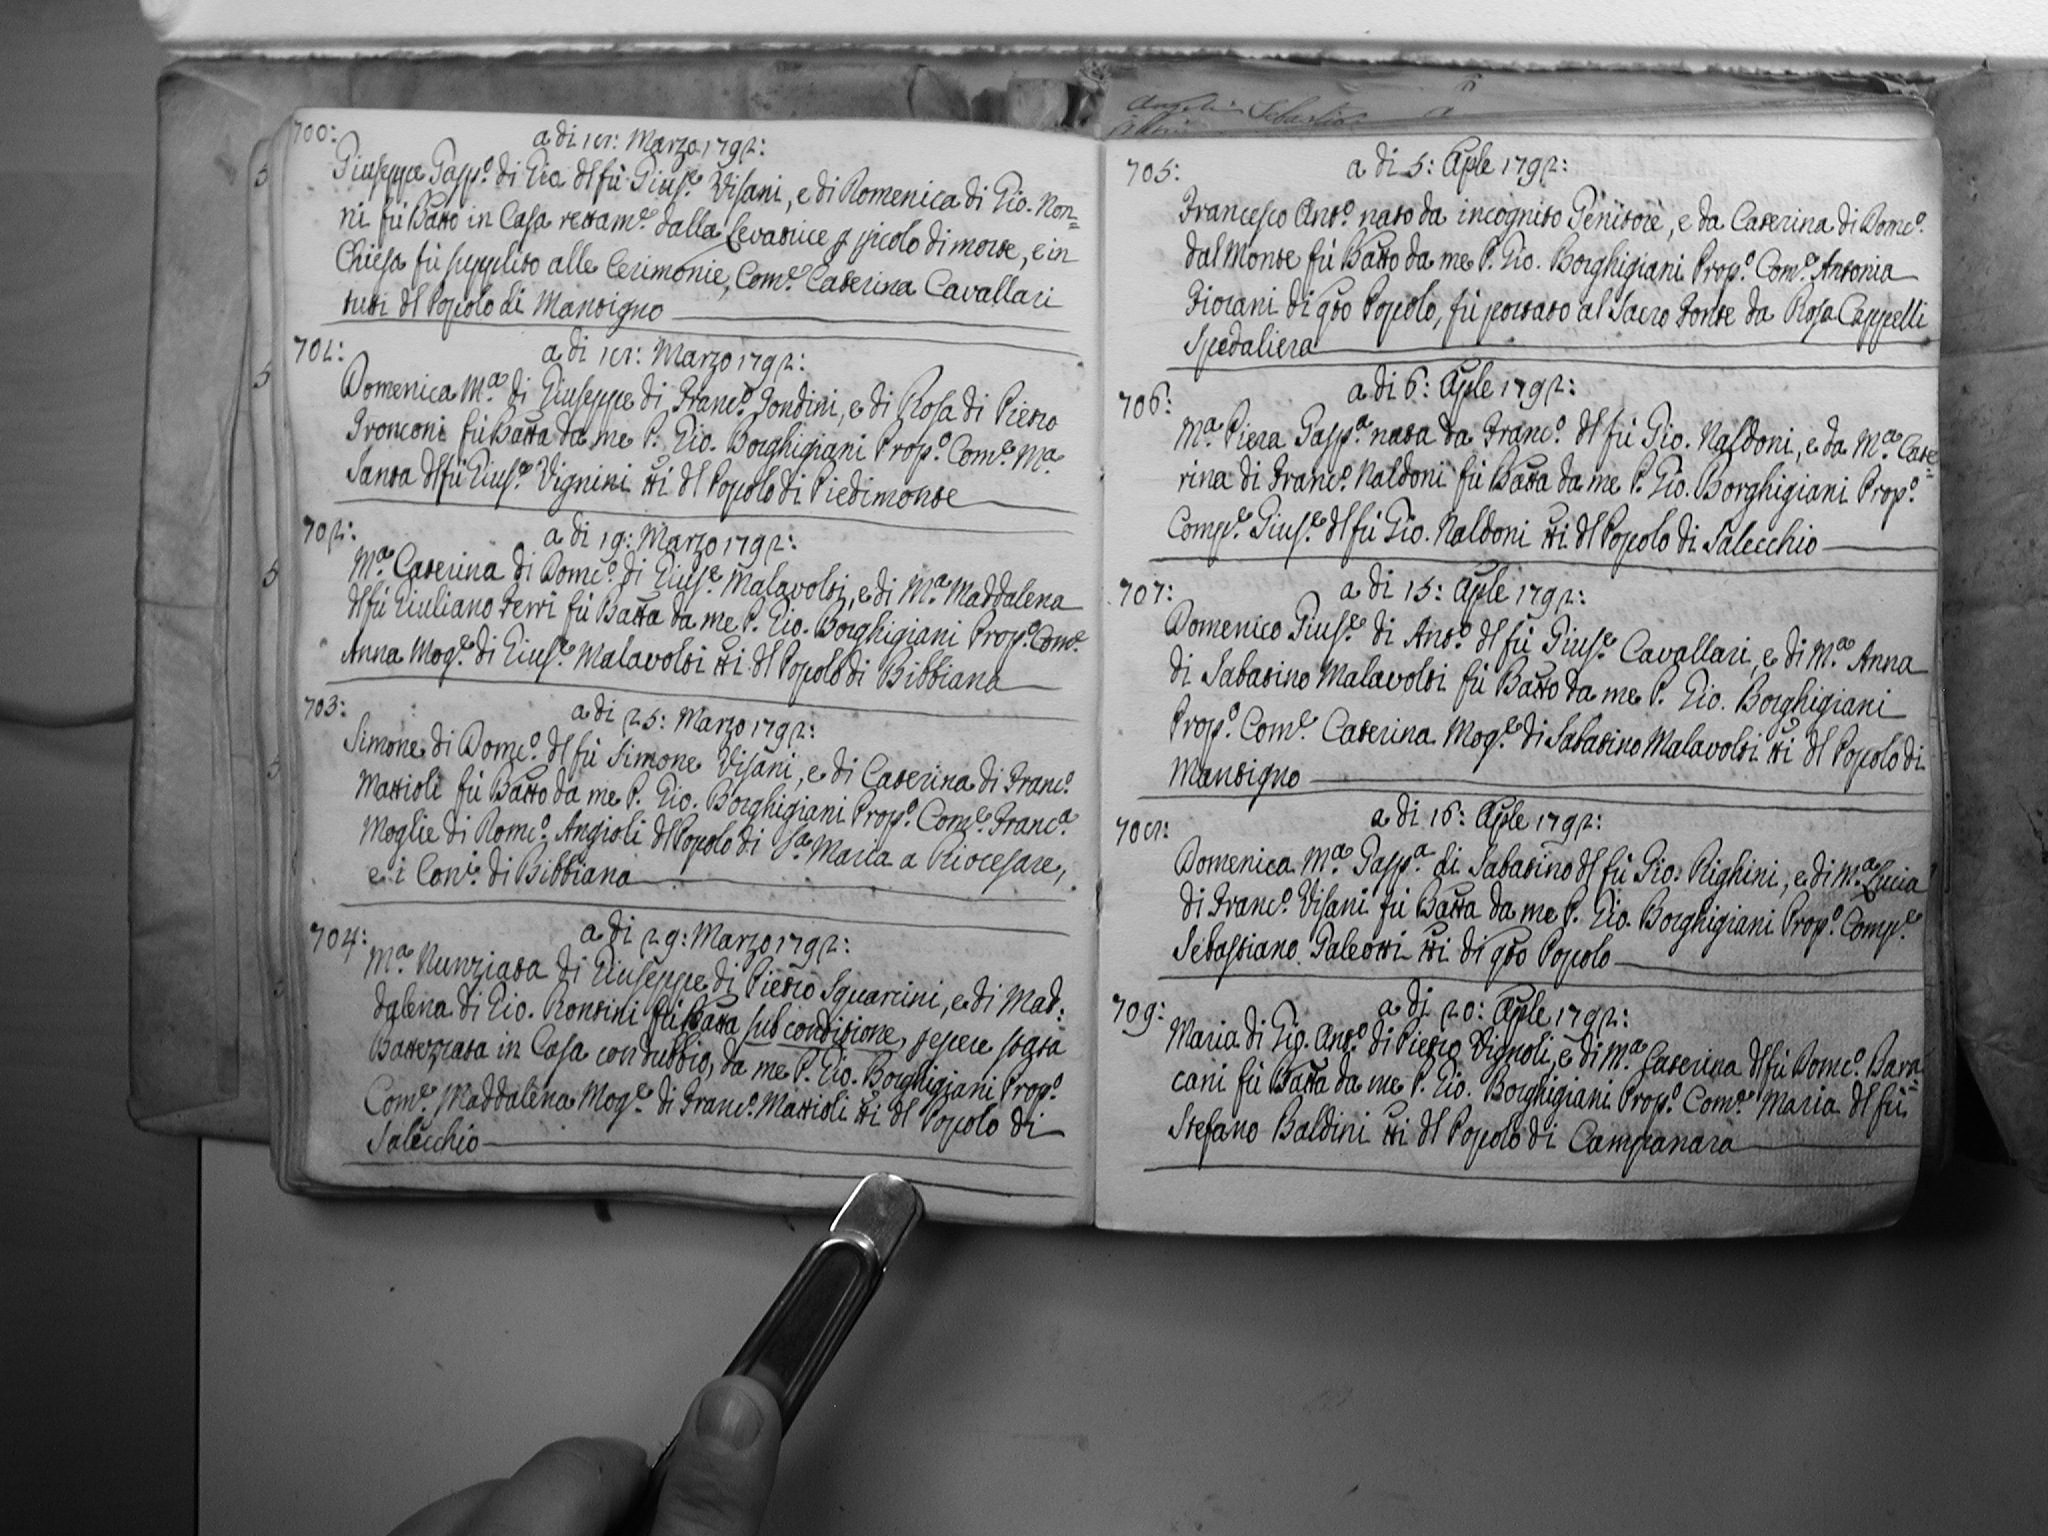 700:
a di 18: Marzo 1792:
Giuseppe Gasp.o di Gio. dl fù Gius.e Visani, e di Domenica di Gio. Non=
ni fù Batto in Casa rettam.e dalla Levatrice p picolo di morte, e in
Chiesa fù supplito alle Cerimonie, Com.e Caterina Cavallari
tutti dl Popolo di Mantigno
701:
a di 18: Marzo 1792:
Domenica M.a di Giuseppe di Franc.o Fondini, e di Rosa di Pietro
Fronconi fù Batta da me P. Gio. Borghigiani Prop.o Com.e M.a
Santa dl fù Gius.e Vignini tti dl Popolo di Piedimonte
702:
a di 19: Marzo 1792:
M.a Caterina di Dom.co di Gius.e Malavolti, e di M.a Maddalena
dl fù Giuliano Ferri fù Batta da me P. Gio. Borghigiani Prop.o Com.e
Anna Mog.e di Gius.e Malavolti tti dl Popolo di Bibbiana
703:
a di 25: Marzo 1792:
Simone di Dom.co dl fù Simone Visani, e di Caterina di Franc.o
Mattioli fù Batto da me P. Gio. Borghigiani Prop.o Com.e Franc.a
Moglie di Rom.o Angioli dl Popolo di S.a Maria a Riocesare,
e i Con.i di Bibbiana
704:
a di 29: Marzo 1792:
M.a Nunziata di Giuseppe di Pietro Squarcini, e di Mad:
dalena di Gio. Rontini fù Batta sub conditione, p essere stata
Battezzata in Casa con dubbio, da me P. Gio. Borghigiani Prop.o
Com.e Maddalena Mog.e di Franc.o Mattioli tti dl Popolo di
Salecchio
705:
a di 5: Aple 1792:
Francesco Ant.o nato da incognito Genitore, e da Caterina di Dom.co
dal Monte fù Batto da me P. Gio. Borghigiani Prop.o Com.e Antonia
Fiorani di qto Popolo, fù portato al Sacro Fonte da Rosa Cappelli
Spedaliera
706:
a di 6: Aple 1792:
M.a Piera Gasp.a nata da Franc.o dl fù Gio. Naldoni, e da M.a Cate=
rina di Franc.o Naldoni fù Batta da me P. Gio. Borghigiani Prop.o
Comp.e Gius.e dl fù Gio. Naldoni tti dl Popolo di Salecchio
707:
a di 15: Aple 1792:
Domenico Gius.e di Ant.o dl fù Gius.e Cavallari, e di M.a Anna
di Sabatino Malavolti fù Batto da me P. Gio. Borghigiani
Prop.o Com.e Caterina Mog.e di Sabatino Malavolti tti dl Popolo di
Mantigno
708:
a di 16: Aple 1792:
Domenica M.a Gasp.a di Sabatino dl fù Gio: Righini, e di M.a Lucia
di Franc.o Visani fù Batta da me P. Gio. Borghigiani Prop.o Comp.e
Sebastiano Galeotti tti di qto Popolo
709:
a di 20: Aple 1792:
Maria di Gio. Ant.o di Pietro Vignoli, e di M.a Caterina dl fù Dom.co Bara=
cani fù Batta da me P. Gio. Borghigiani Prop.o Com.e Maria dl fù
Stefano Baldini tti dl Popolo di Campanara